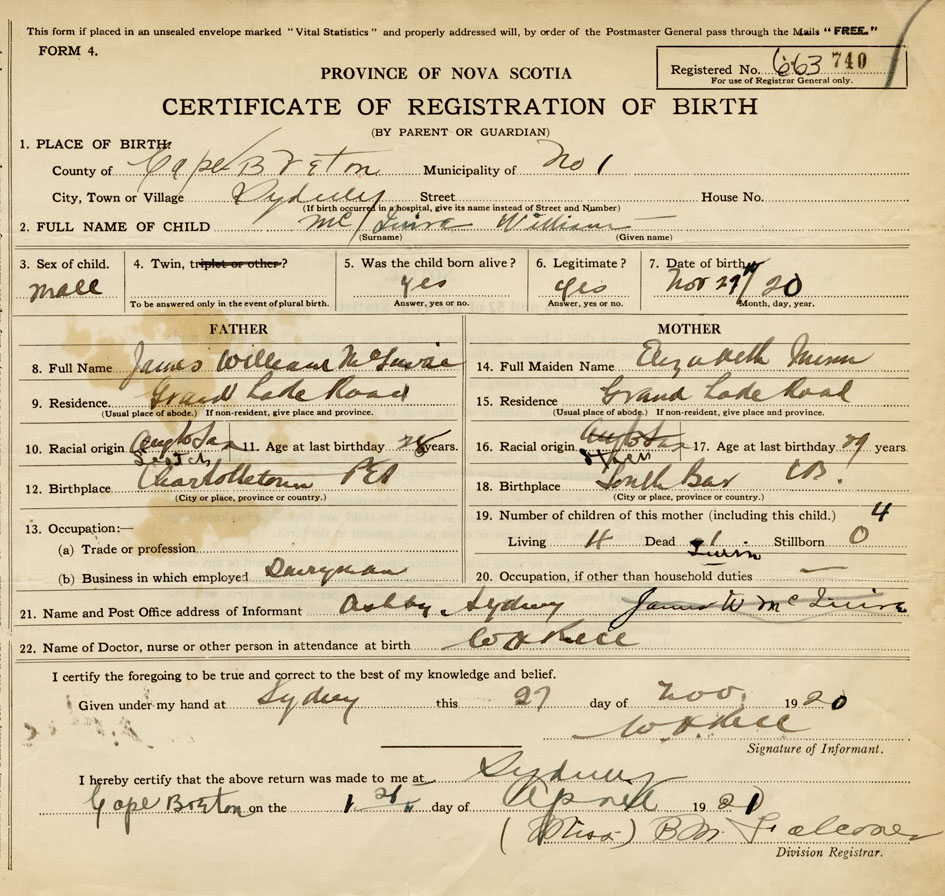 This form if placed in an unsealed envelope marked "Vital Statistics" and properly addressed will, by order of the Postmaster General pass through the Mails "FREE."
FORM 4.
Registered No. 663 740
For use of Registrar General only.
PROVINCE OF NOVA SCOTIA
CERTIFICATE OF REGISTRATION OF BIRTH
(BY PARENT OR GUARDIAN)
1. PLACE OF BIRTH:
County of Cape Breton Municipality of No 1
City, Town or Village Sydney Street House No.
(If birth occurred in a hospital, give its name instead of Street and Number)
2. FULL NAME OF CHILD William
(Surname) (Given name)
3. Sex of child. 4. Twin, triplet or other? 5. Was the child born alive? 6. Legitimate? 7. Date of birth
Male yes yes Nov 27 20
To be answered only in the event of plural birth. Answer, yes or no. Answer, yes or no. Month, day, year.
FATHER MOTHER
8. Full Name James William 14. Full Maiden Name Elizabeth
9. Residence. Grand Lake Road 15. Residence Grand Lake Road
(Usual place of abode.) If non-resident, give place and province. (Usual place of abode.) If non-resident, give place and province.
10. Racial origin Anglo Sax 11. Age at last birthday 28 years. 16. Racial origin Anglo Sax 17. Age at last birthday 29 years
Scotch
12. Birthplace Charlottetown PEI 18. Birthplace South Bar CB.
(City or place, province or country.) (City or place, province or country.)
13. Occupation:— 19. Number of children of this mother (including this child.) 4
(a) Trade or profession Living 4 Dead Stillborn 0
(b) Business in which employed Dairyman 20. Occupation, if other than household duties —
21. Name and Post Office address of Informant Ashby Sydney James W
22. Name of Doctor, nurse or other person in attendance at birth
I certify the foregoing to be true and correct to the best of my knowledge and belief.
Given under my hand at Sydney this 27 day of Nov 1920
Signature of Informant.
I hereby certify that the above return was made to me at Sydney
Cape Breton on the 1st day of April 1921
(Miss) B M Falconer
Division Registrar.